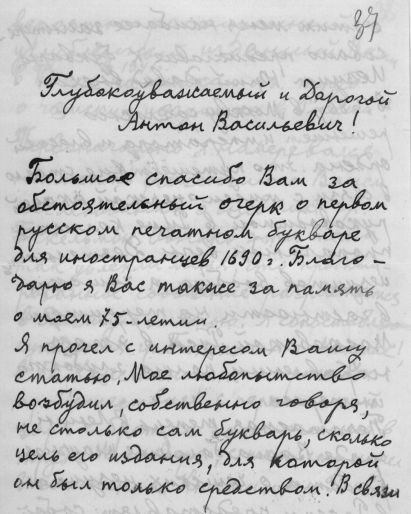 37
Глубокоуважаемый и Дорогой
Антон Васильевич!
Большое спасибо Вам за
обстоятельный очерк о первом
русском печатном букваре
для иностранцев 1690 г. Благо-
дарю я Вас также за память
о моем 75-летии.
Я прочел с интересом Вашу
статью. Мое любопытство
возбудил, собственно говоря,
не столько сам букварь, сколько
цель его издания, для которой
он был только средством. В связи